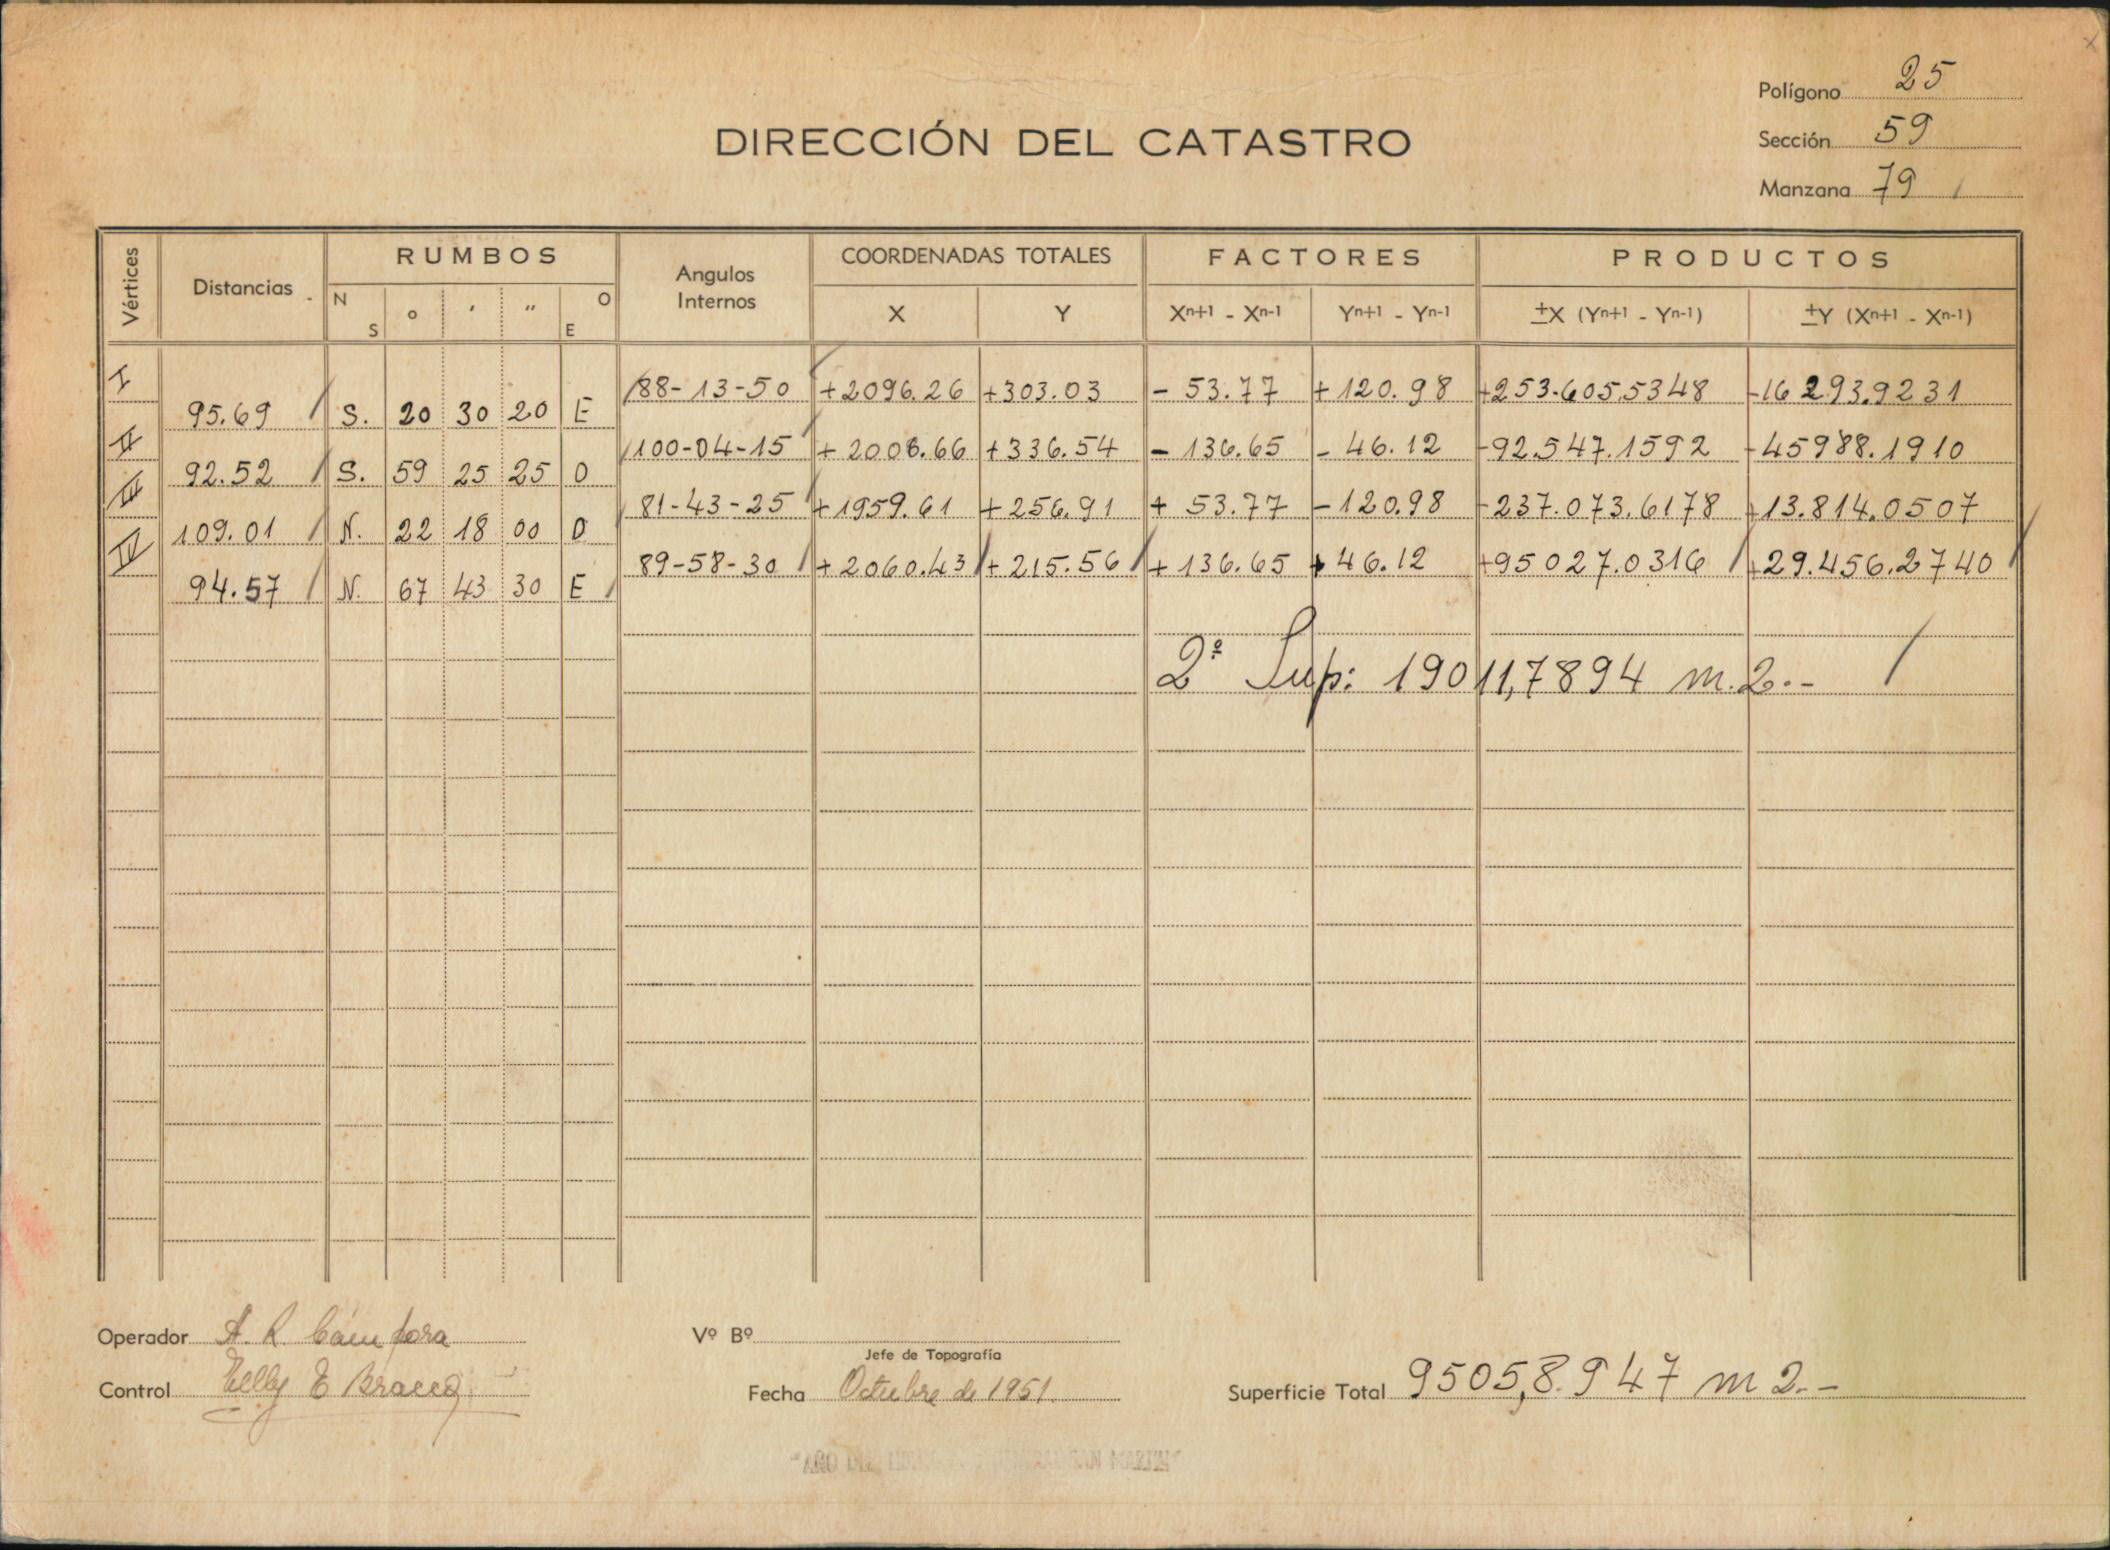 Polígono 25
DIRECCIÓN DEL CATASTRO
Sección 59
Manzana 79
Vértices Distancias RUMBOS Angulos Internos COORDENADAS TOTALES FACTORES PRODUCTOS
N S o ′ ″ O E X Y Xⁿ⁺¹ - Xⁿ⁻¹ Yⁿ⁺¹ - Yⁿ⁻¹ ±X (Yⁿ⁺¹ - Yⁿ⁻¹) ±Y (Xⁿ⁺¹ - Xⁿ⁻¹)
I 88-13-50 +2096.26 +303.03 - 53.77 + 120.98 +253.605,5348 -16293.9231
95.69 S. 20 30 20 E
II 100-04-15 + 2006.66 +336.54 - 136.65 - 46.12 -92.547.1592 -45988.1910
92.52 S. 59 25 25 O
III 81-43-25 +1959.61 +256.91 + 53.77 -120.98 -237.073.6178 +13.814.0507
109.01 N. 22 18 00 O
IV 89-58-30 +2060.43 +215.56 + 136.65 + 46.12 +95027.0316 +29.456.2740
94.57 N. 67 43 30 E
2ª Sup: 19011,7894 m.2.-
Operador A. R. Cámpora
Vº Bº
Jefe de Topografía
Control
Fecha Octubre de 1951.
Superficie Total 9505,8.947 m2.-